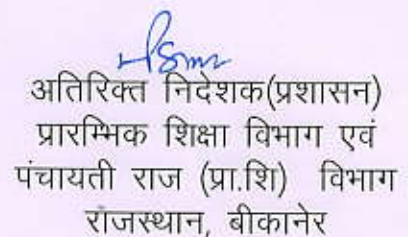 अतिरिक्त निदेशक(प्रशासन)
प्रारम्भिक शिक्षा विभाग एवं
पंचायती राज (प्रा.शि) विभाग
राजस्थान, बीकानेर